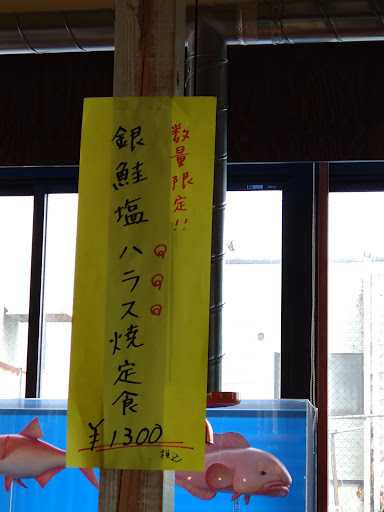 数量限定!!
銀鮭塩ハラス焼定食
¥1300
税込